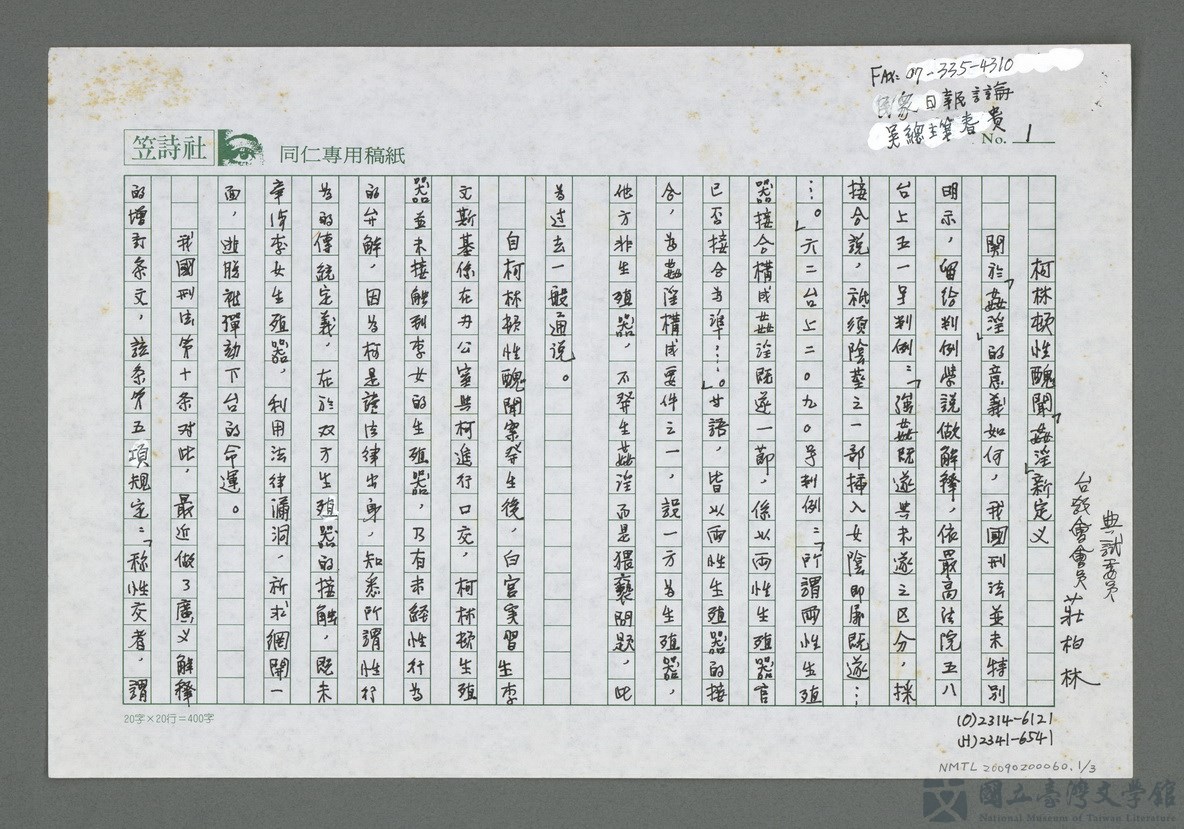 FAX: 07-335-4310
民眾日報評論
吳總主筆春貴
No. 1
笠詩社
同仁專用稿紙
柯林頓性醜聞「姦淫」新定义
典試委員
台教會會員 莊柏林
關於「姦淫」的意義如何，我國刑法並未特別
明示，留給判例學說做解釋，依最高法院五八
台上五一号判例：「強姦既遂與未遂之区分，採
接合說，祗須陰莖之一部揷入女陰即屬既遂…
…。」六二台上二〇九〇号判例：「所謂兩性生殖
器接合構成姦淫既遂一節，係以兩性生殖器官
已否接合為準……。」廿語，皆以兩性生殖器的接
合，為姦淫構成要件之一，設一方為生殖器，
他方非生殖器，不發生姦淫而是猥褻問題，此
為過去一般通說。
自柯林頓性醜聞案發生後，白宮实習生李
文斯基係在办公室與柯進行口交，柯林頓生殖
器並未接觸到李女的生殖器，乃有未經性行為
的弁解，因為柯是讀法律出身，知悉所謂性行
為的傳統定義，在於双方生殖器的接触，既未
牽涉李女生殖器，利用法律漏洞，祈求網開一
面，逃脫被彈劾下台的命運。
我國刑法第十条对此，最近做了廣义解釋
的增訂条文，該条第五項規定：「称性交者，謂
20字×20行＝400字
(O)2314-6121
(H)2341-6541
NMTL 20090200060. 1/3
國立臺灣文學館
National Museum of Taiwan Literature